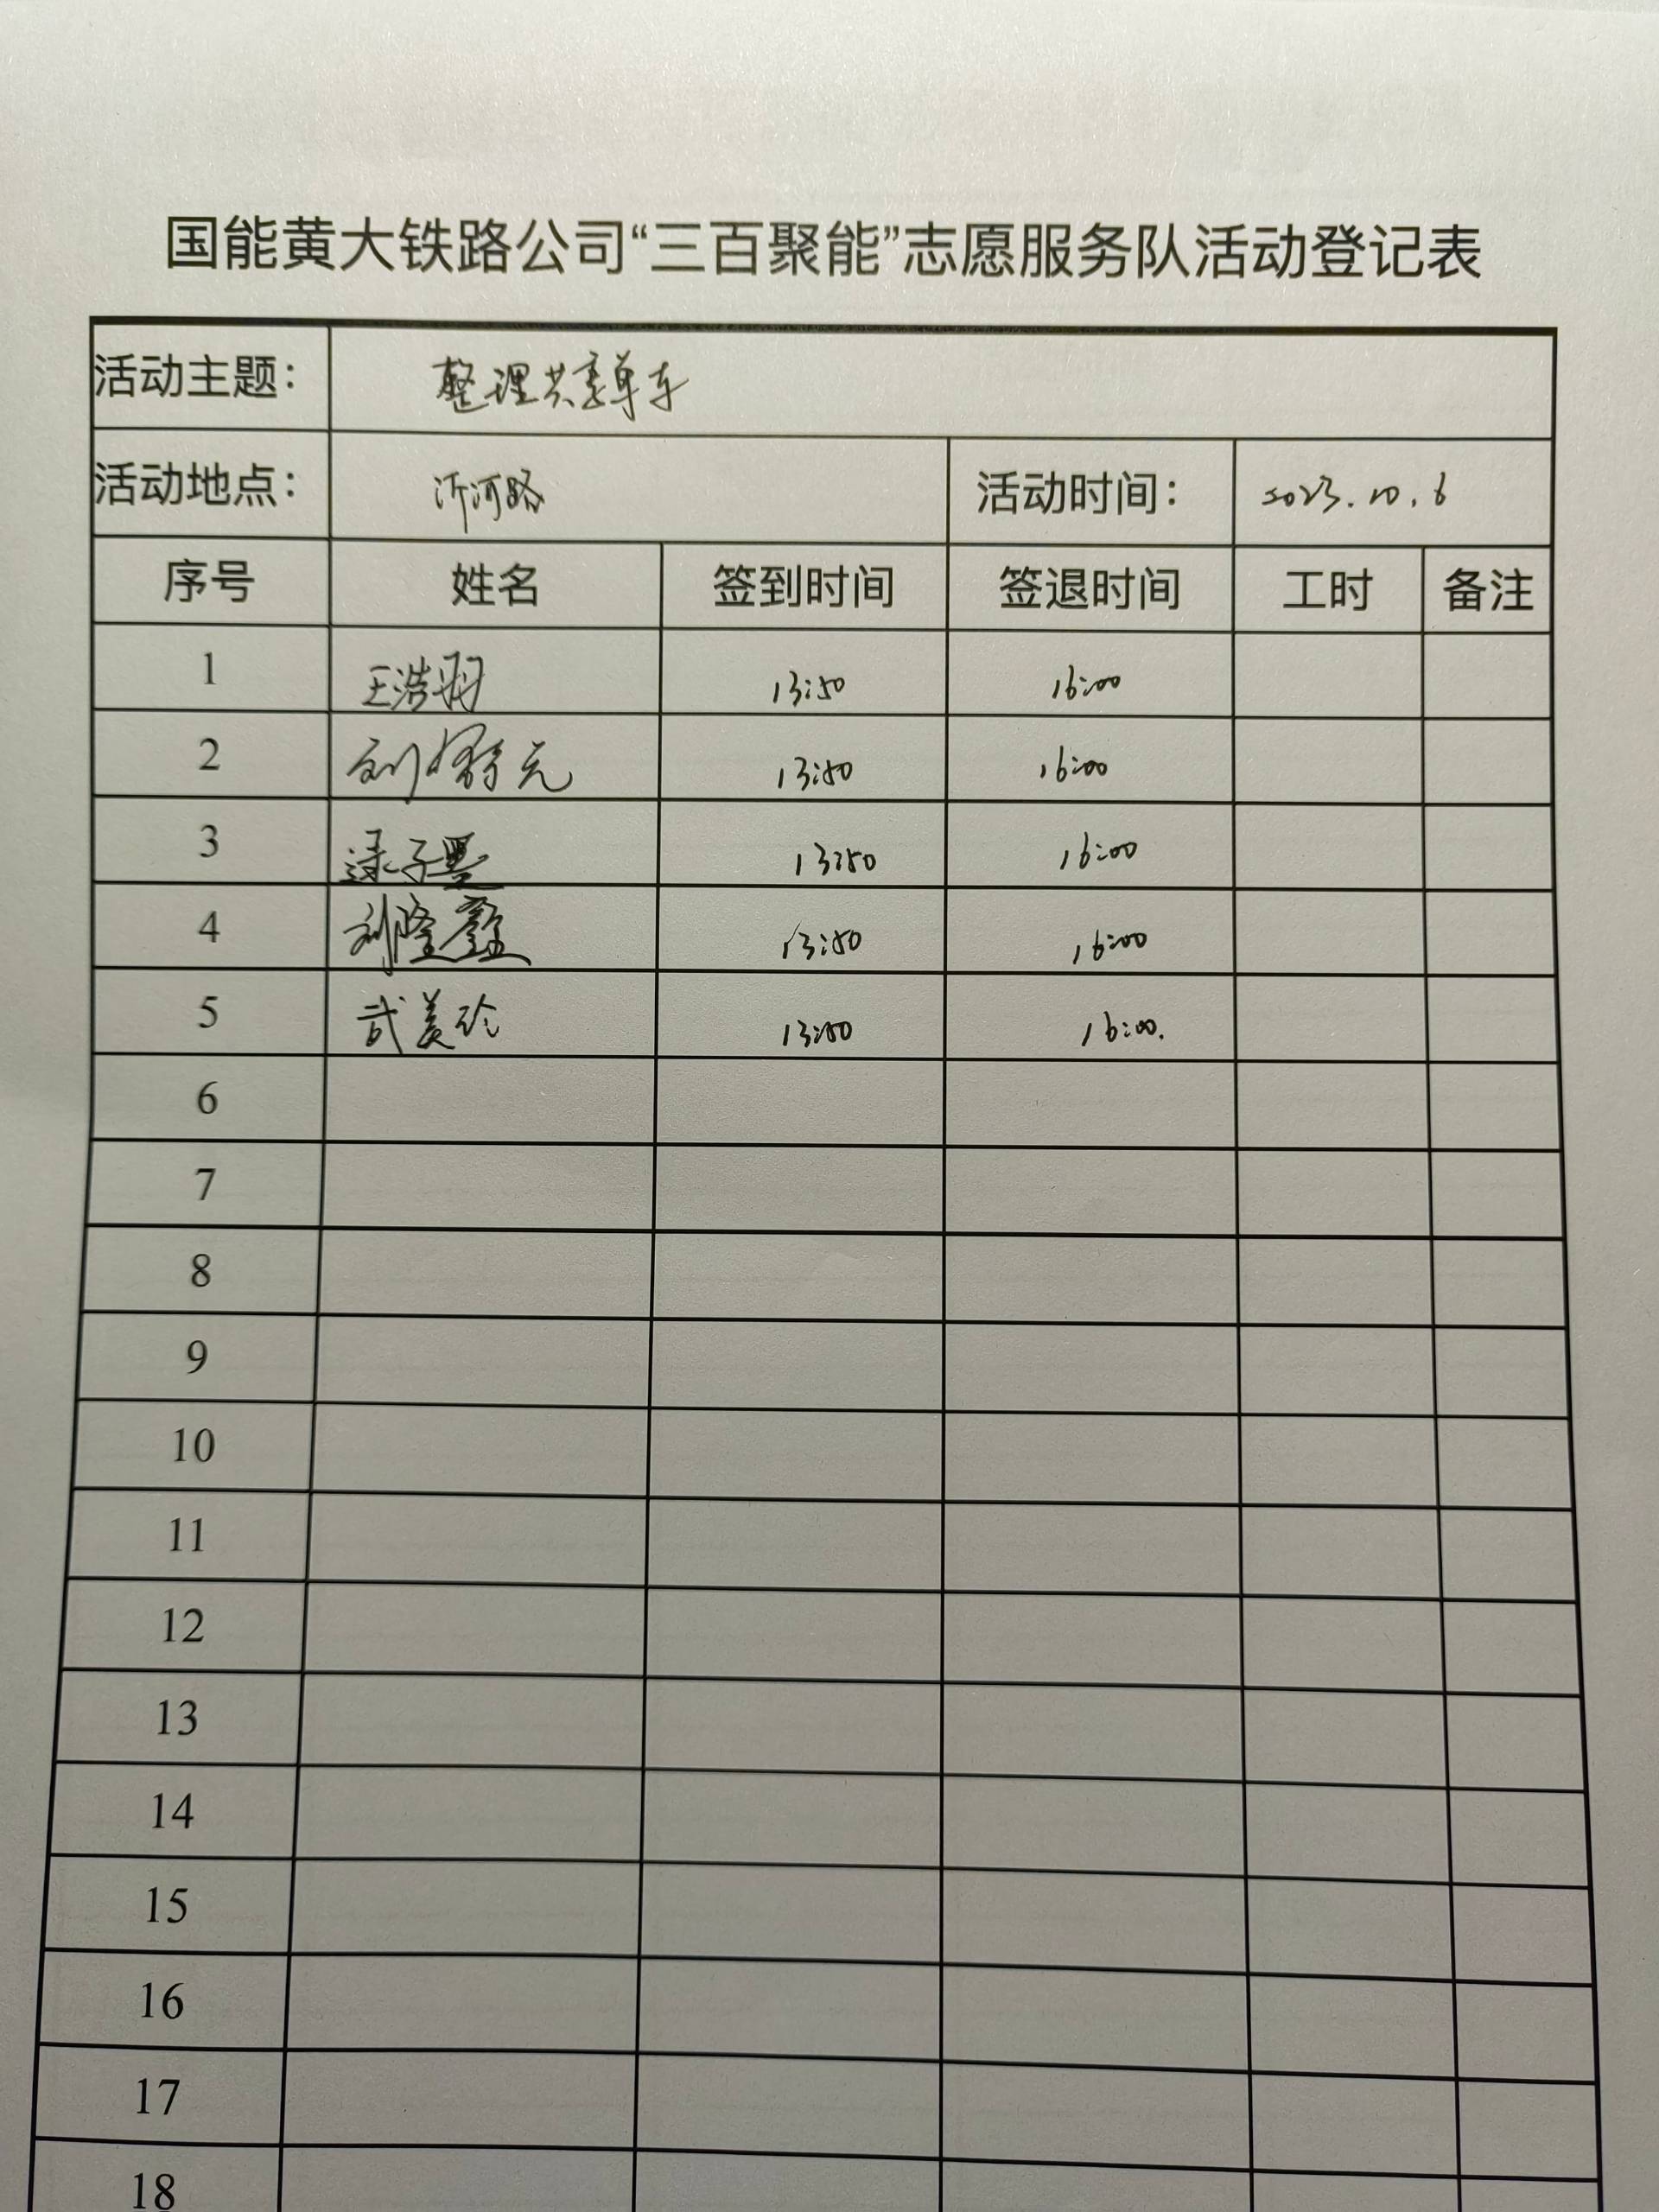 国能黄大铁路公司“三百聚能”志愿服务队活动登记表
活动主题： 整理共享单车
活动地点： 沂河路 活动时间： 2023.10.6
序号 姓名 签到时间 签退时间 工时 备注
1 王浩羽 13:50 16:00
2 刘 元 13:50 16:00
3 逯子墨 13:50 16:00
4 刘隆鑫 13:50 16:00
5 武美玲 13:50 16:00.
6
7
8
9
10
11
12
13
14
15
16
17
18